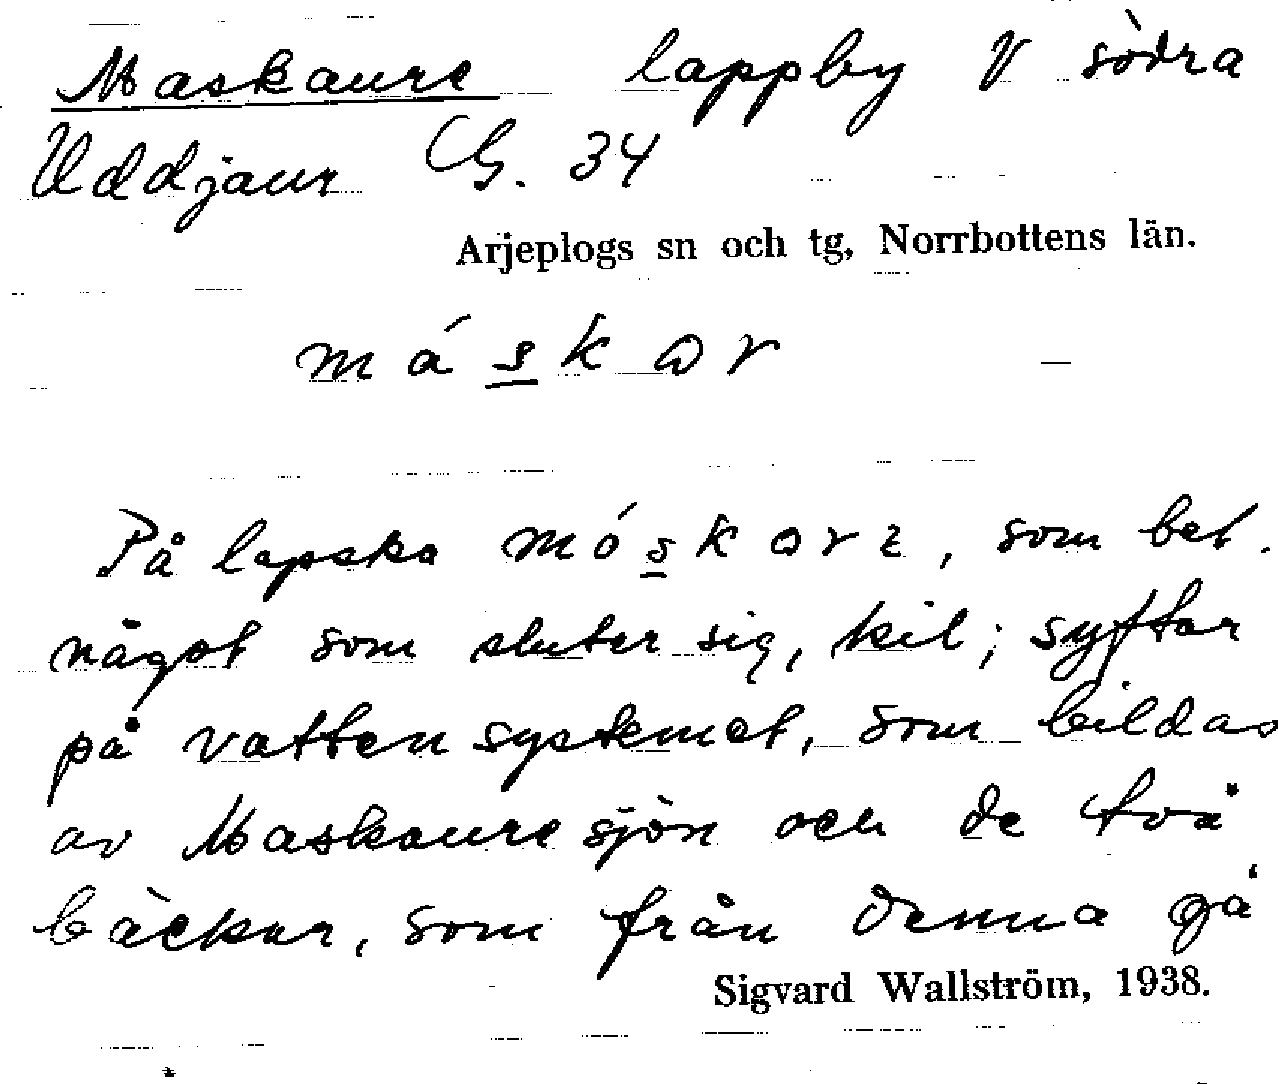 Maskaure lappby V södra
Uddjaur G. 34
Arjeplogs sn och tg, Norrbottens län.
máskɷr
På lapska móskɷrɛ, som bet.
något som sluter sig, kil; syftar
på vattensystemet, som bildas
av Maskauresjön och de två
bäckar, som från denna gå
Sigvard Wallström, 1938.